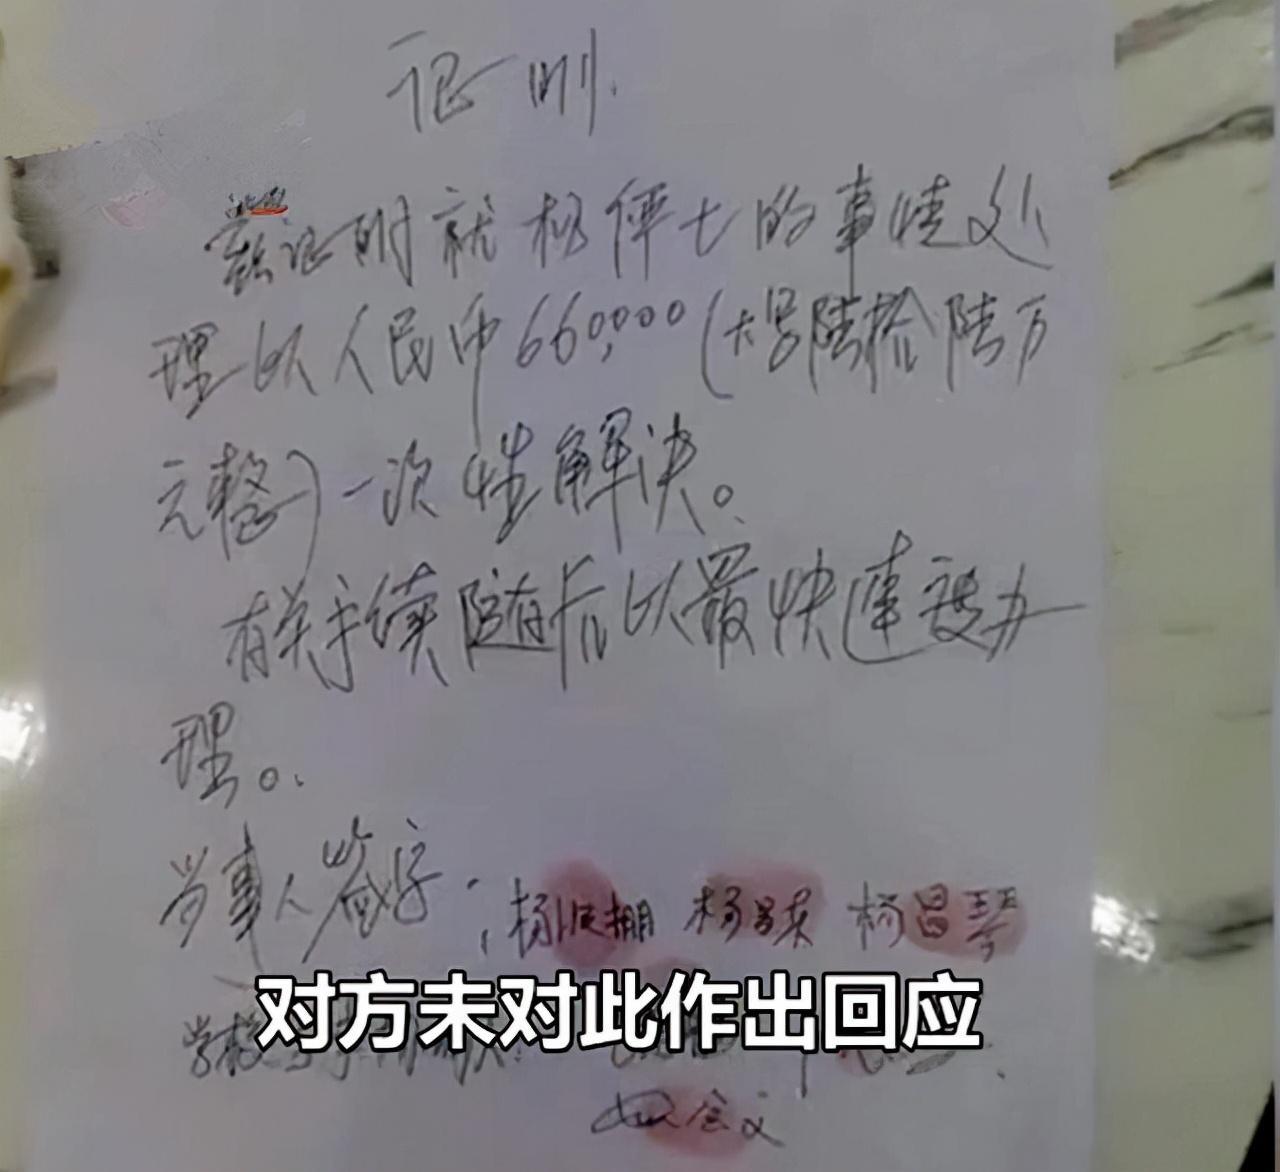 证明
兹证明就杨伟七的事情处
理以人民币660,000(大写陆拾陆万
元整)一次性解决。
有关手续随后以最快速度办
理。
当事人签字: 杨 杨昌荣 杨昌琴
对方未对此作出回应
学校